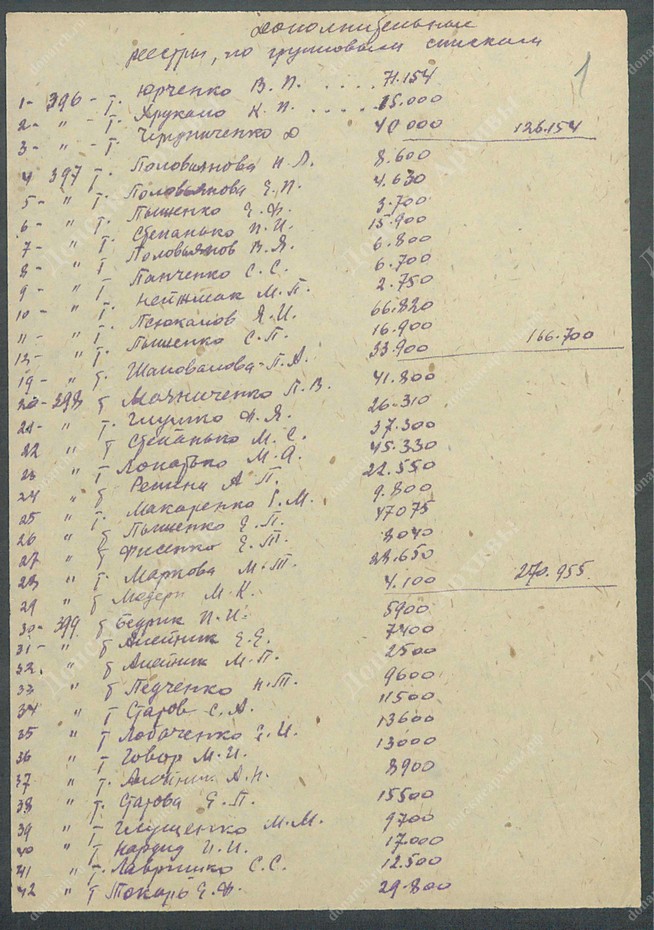 Дополнительные
реестры, по групповым спискам
1
1- 396 - Т. Юрченко В. П. .... 71.154
2- " - Т. К. П. .... 15.000
3- " - Т Чередниченко 40 000 126.154
4 397 Т. Половьянова Н. Л. 8.600
5- " Т Половьянова Е. П. 4.630
6- " Т. Пышенко Е. Ф. 3.700
7- " Т Степанько П. И. 15.900
8- " Т. Половьянов В. Я. 6.800
9- " Т. Панченко С. С. 6.700
10- " Т. М. П. 2.750
11- " Т. Псюкалов Я. И. 66.820
12- " Т. Пышенко С. П. 16.900
19- " Т. Шаповалова Л. А. 33.900 166.700
20- 398 Т Махниченко П. В. 41.800
21- " Т. Глушко Ф. Я. 26.310
22 " Т Степанько М. С. 37.300
23 " Т Лопатько М. А. 45.330
24 " Т Репина А П. 22.550
25 " Т. Макаренко Г. М. 9.800
26 " Т Пышенко Е. П. 47075
27 " Т Фисенко Е. Т. 8040
28 " Т. Маркова М. Т. 23.650
29 " Т М. К. 4.100 270.955
30- 399 Т Бедрик П. И. 5900
31- " Т Олейник Е. Е. 7400
32. " Т Олейник М. П. 2500
33 " Т Педченко Н. Т. 9600
34 " Т Старов С. А. 11500
35 " Т Лобаченко Е. И. 13600
36 " Т Говор М. И. 13000
37 " Т. Олейник А. Н. 8900
38 " Т. Старова Е. П. 15500
39 " Т Глущенко М. М. 9700
40 " Т И. И. 17.000
41 " Т. Лавришко С. С. 12.500
42 " Т Токарь Е. Ф. 29.800